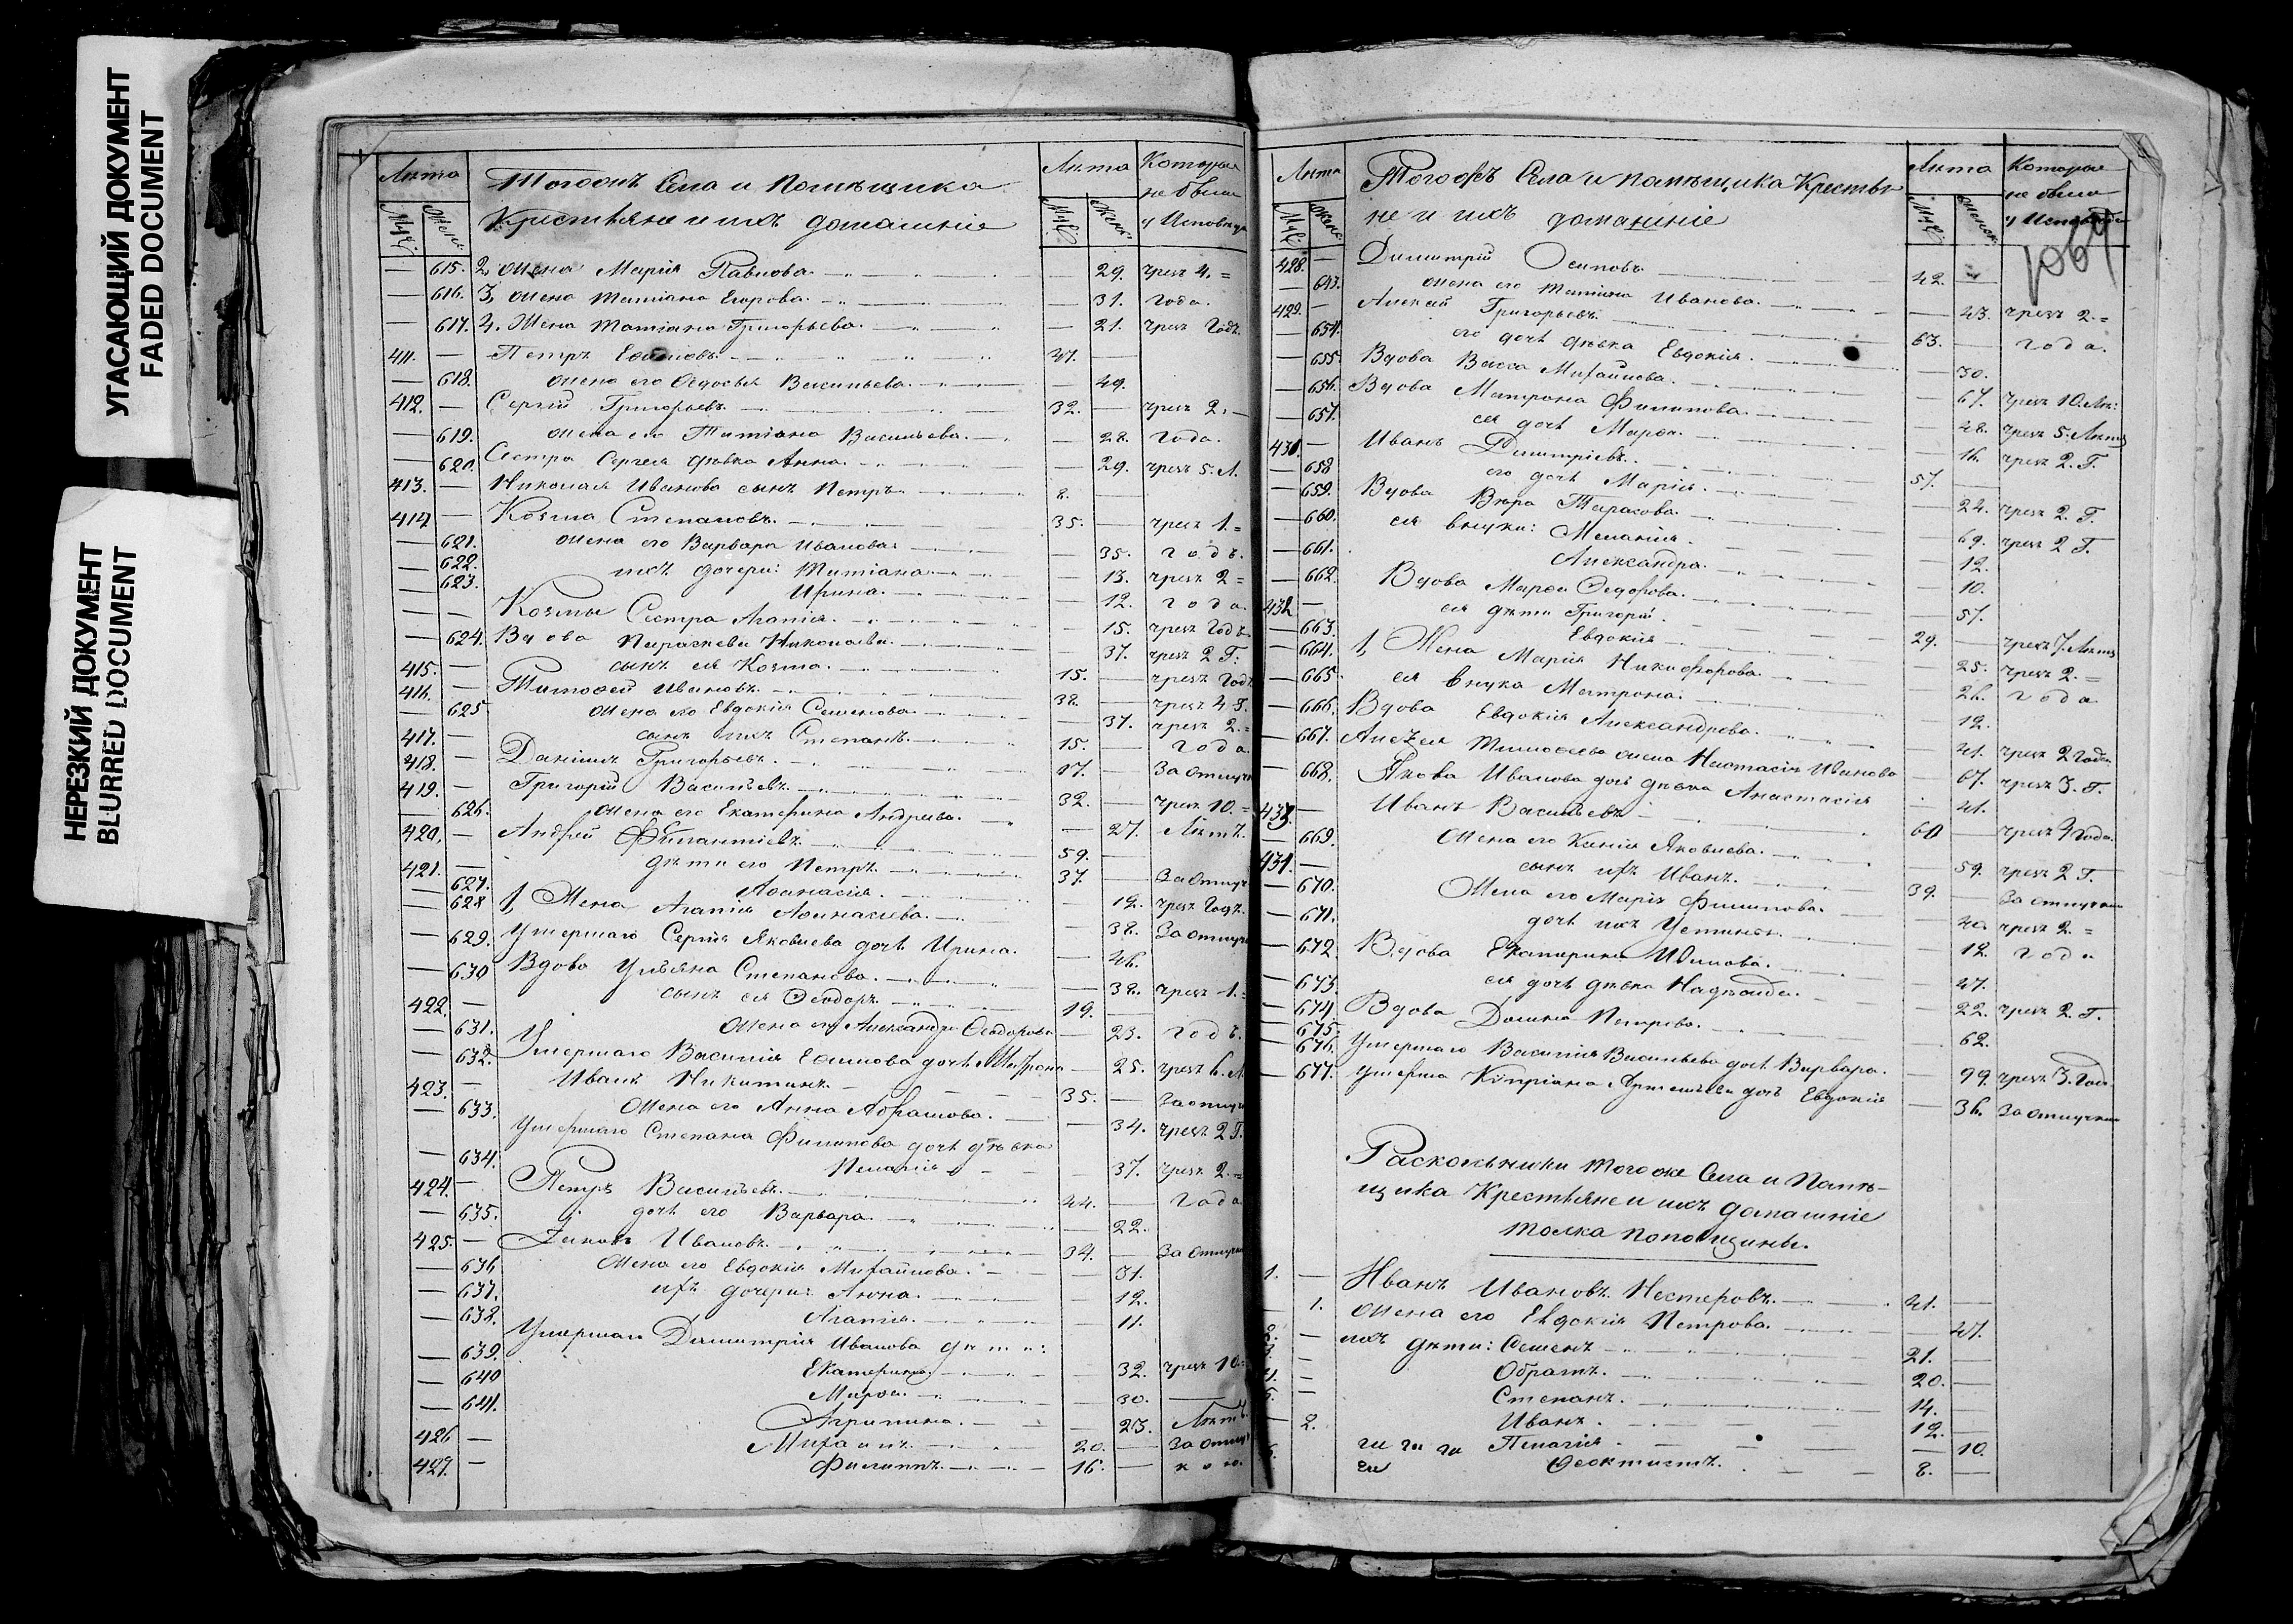 УГАСАЮЩИЙ ДОКУМЕНТ
FADED DOCUMENT
НЕРЕЗКИЙ ДОКУМЕНТ
BLURRED DOCUMENT
Лѣта Тогожъ Села и Помѣщика Лѣта Которые
Муж. Жен. Крестьяне и ихъ домашніе Муж. Женс. не были у Исповѣди
— 615. 2, жена Марія Павлова. — 29. чрезъ 4. =
— 616. 3, жена Татіана Егорова. — 31. года.
— 617. 4. Жена Татіана Григорьева. — 21. чрезъ Годъ.
411. — Петръ Ефимовъ. 47.
— 618. жена его Ѳедосья Васильева. — 49.
412. — Сергій Григорьевъ. 32. — чрезъ 2. —
— 619. жена его Татіана Васильева. — 28. Года.
— 620. Сестра Сергея дѣвка Анна. — 29. чрезъ 5. Л.
413. — Николая Иванова сынъ Петръ. 8.
414 — Козма Степановъ. 35. — чрезъ 1. =
— 621. жена его Варвара Иванова. — 35. годъ.
— 622. ихъ дочери: Татіана. — 13. чрезъ 2 =
— 623. Ирина. — 12. года.
— — Козмы Сестра Агапія. — 15. чрезъ Годъ
— 624. Вдова Параскева Николаева. — 37. чрезъ 2 Г:
415. — сынъ ея Козма. 15. — чрезъ Годъ
416. — Тимоѳей Ивановъ. 38. — чрезъ 4 Г.
— 625 жена его Евдокія Семенова. — 37. чрезъ 2. =
417. — сынъ ихъ Степанъ. 15. — года.
418. — Даніилъ Григорьевъ. 17. — За отлуч
419. — Григорій Васильевъ. 32. — чрезъ 10. =
— 626. жена его Екатерина Андреева. — 27. Лѣтъ.
420. — Андрей 59. —
421. — дѣти его Петръ. 37. — За отлуч
— 627. Аѳанасія. — 12. чрезъ Годъ.
— 628 1, Жена Агапія Аѳанасіева. — 38. За отлуч
— 629. Умершаго Сергія Яковлева дочь Ирина. — 46.
— 630 Вдова Ульяна Степанова. — 38. чрезъ 1. =
422. — сынъ ея Ѳеодоръ. 19. —
— 631. Жена его Александра Ѳеодорова — 23. годъ.
— 632. Умершаго Василія Ефимова дочь Матрона — 25. чрезъ 6. Л
423. — Иванъ Никитинъ. 35. — За отлуч
— 633. Жена его Анна Абрамова. — 34. чрезъ 2 Г.
Умершаго Степана Филипова дочь дѣвка
— 634. Пелагія — 37. чрезъ 2. =
424. — Петръ Васильевъ. 44. — года
— 635. дочь его Варвара. — 22.
425. — Яковъ Ивановъ. 34. — За отлуч
— 636 Жена его Евдокія Михайлова. — 31.
— 637. ихъ дочери: Анна. — 12.
— 638. Агапія. — 11.
Умершаго Димитрія Иванова дѣти:
— 639. Екатерина. — 32. чрезъ 10. =
— 640 Марѳа. — 30. —
— 641. Агрипина. — 23. Лѣтъ
426 — Михаилъ. 20. — За отлуч
427. — Филиппъ. 16. — кою.
Лѣта Тогожъ Села и помѣщика Крестья Лѣта Которые
Муж. Женс. не и ихъ домашніе Муж. Женск. не были у Исповѣди
1064
428. — Димитрій Осиповъ. 42. —
— 653. жена его Татіана Иванова. — 43. чрезъ 2. =
429. — Алексій Григорьевъ. 63. — года.
— 654. его дочь дѣвка Евдокія. — 30.
— 655. Вдова Васса Михайлова. — 67. чрезъ 10. Лѣ:
— 656. Вдова Матрона Филипова. — 48. чрезъ 5. Лѣтъ
— 657. ея дочь Марѳа. — 16. чрезъ 2. Г.
430. — Иванъ Димитріевъ. 57. —
— 658 его дочь Марія. — 24. чрезъ 2. Г.
— 659. Вдова Вѣра Тарасова. — 69. чрезъ 2 Г.
— 660. ея внуки: Меланія. — 12.
— 661. Александра. — 10.
— 662. Вдова Марѳа Ѳедорова. — 57.
432 — ея дѣти Григорій. 29. — чрезъ 7. Лѣтъ
— 663. Евдокія. — 25. чрезъ 2. =
— 664. 1, Жена Марія Никифорова. — 26. года
— 665. ея внука Матрона. — 12.
— 666. Вдова Евдокія Александрова. — 41. чрезъ 2 Года
— 667. Алексея Тимоѳеева жена Настасія Иванова — 67. чрезъ 3. Г.
— 668. Якова Иванова дочь дѣвка Анастасія — 41.
433. — Иванъ Васильевъ 60 — чрезъ 4 Года.
— 669. Жена его Ксенія Яковлева. — 59. чрезъ 2 Г.
434. — сынъ ихъ Иванъ. 39. — За отлучкою
— 670. Жена его Марія Филипова. — 40 чрезъ 2. =
— 671. дочь ихъ Устинья. — 12. года
— 672. Вдова Екатерина — 47.
— 673. ея дочь дѣвка Надежда. — 22. чрезъ 2. Г.
— 674 Вдова Домна Петрова. — 62.
— 675.
— 676. Умершаго Василія Васильева дочь Варвара. — 99. чрезъ 3. Года
— 677. Умерша Кипріана Артемьева дочь Евдокія — 36. За отлучкою
Раскольники того же Села и Помѣ-
щика Крестьяне и ихъ домашніе
толка поповщины.
1. — Иванъ Ивановъ Нестеровъ. 41. —
— 1. жена его Евдокія Петрова. — 47.
2. — ихъ дѣти: Семенъ 21. —
— 20. —
— Степанъ. 14. —
— Иванъ. 12. —
2. Пелагія. — 10.
Ѳеоктистъ. 8. —